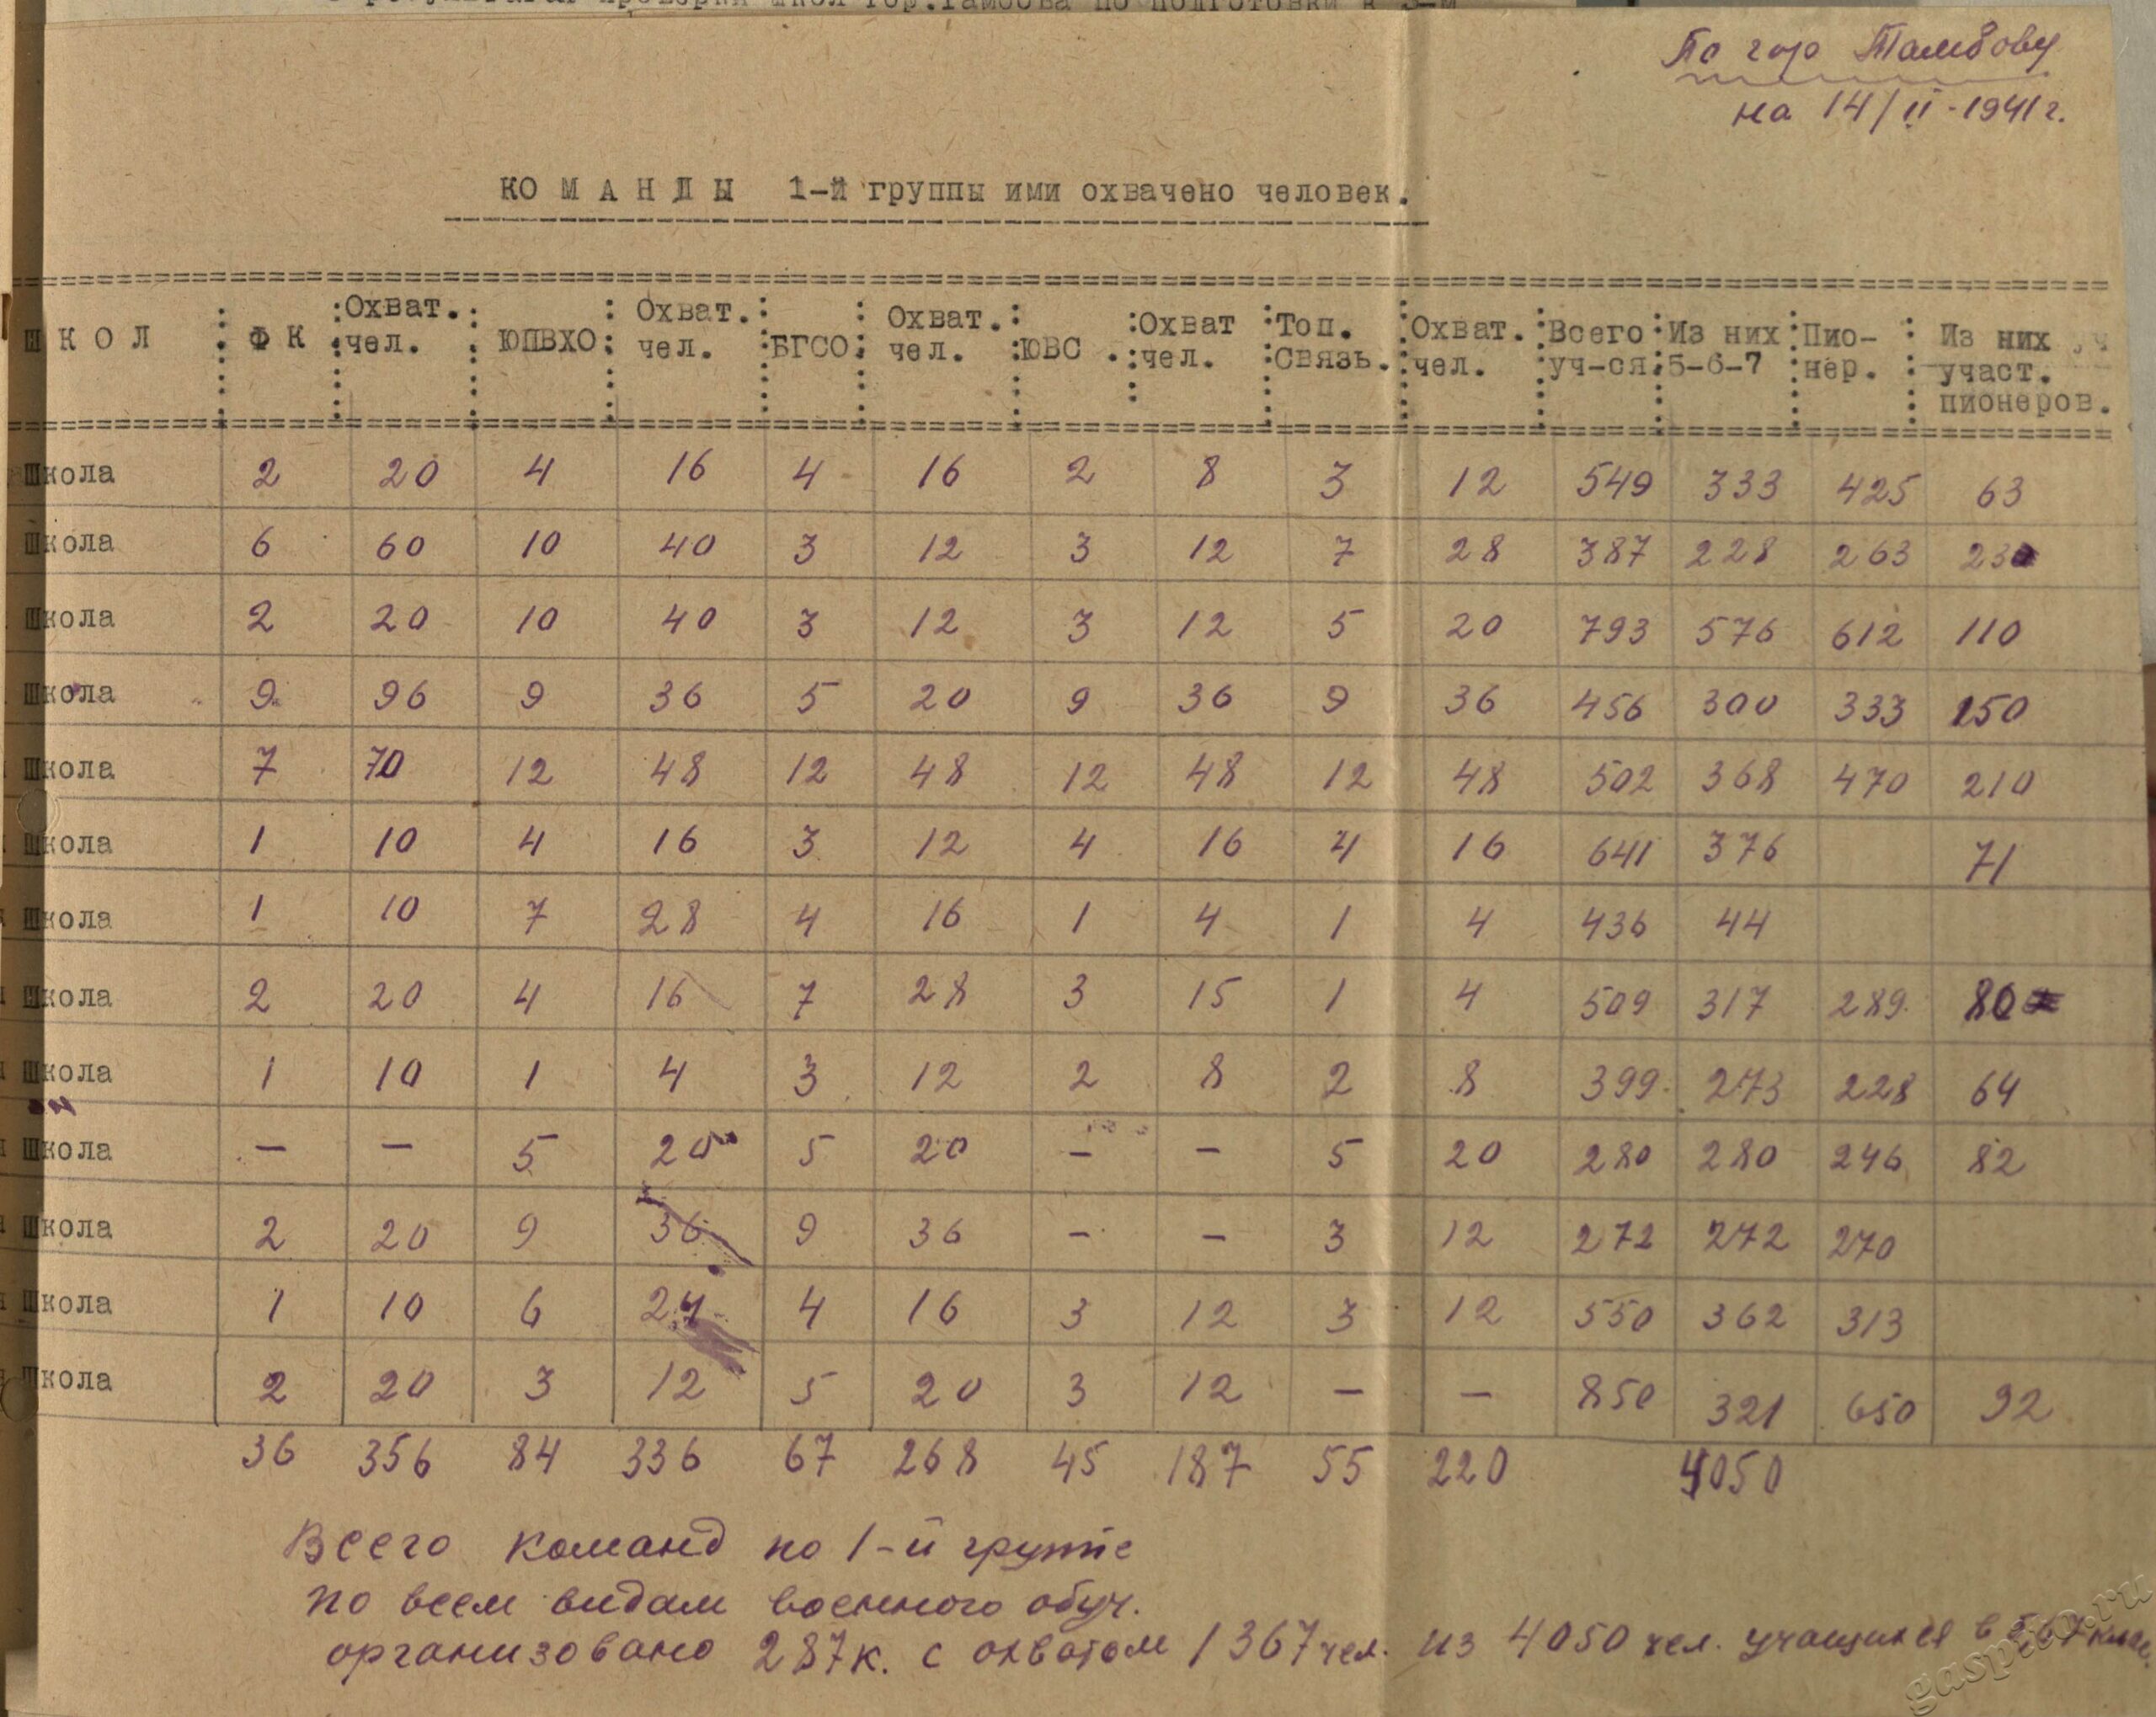 по подготовки к 3-й
По гор Тамбову
на 14/II-1941г.
КОМАНДЫ 1-й группы ими охвачено человек.
ШКОЛ ФК Охват. чел. ЮПВХО Охват. чел. БГСО Охват. чел. ЮВС. Охват чел. Топ. Связь. Охват. чел. Всего уч-ся Из них 5-6-7 Пио-нер. Из них участ. пионеров.
Школа 2 20 4 16 4 16 2 8 3 12 549 333 425 63
Школа 6 60 10 40 3 12 3 12 7 28 387 228 263 230
Школа 2 20 10 40 3 12 3 12 5 20 793 576 612 110
Школа 9 96 9 36 5 20 9 36 9 36 456 300 333 150
Школа 7 70 12 48 12 48 12 48 12 48 502 368 470 210
Школа 1 10 4 16 3 12 4 16 4 16 641 376 71
Школа 1 10 7 28 4 16 1 4 1 4 436 44
Школа 2 20 4 16 7 28 3 15 1 4 509 317 289 80
Школа 1 10 1 4 3 12 2 8 2 8 399 273 228 64
Школа — — 5 20 5 20 — — 5 20 280 280 246 82
Школа 2 20 9 36 9 36 — — 3 12 272 272 270
Школа 1 10 6 24 4 16 3 12 3 12 550 362 313
Школа 2 20 3 12 5 20 3 12 — — 850 321 650 92
36 356 84 336 67 268 45 187 55 220 4050
Всего команд по 1-й группе
по всем видам военного обуч.
организовано 287 к. с охватом 1367 чел. из 4050 чел. учащихся в
gaspito.ru